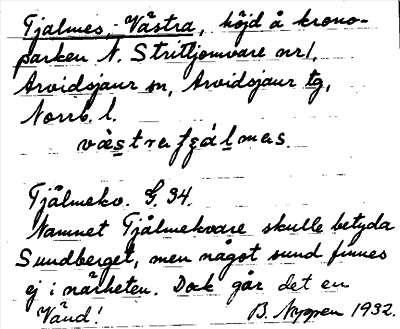 Tjålmes, - Västra, höjd å krono-
parken N. Strittjomvare nr 1,
Arvidsjaur sn, Arvidsjaur tg,
Norrb. l.
Tjålmeko. G. 34.
Namnet Tjålmekvare skulle betyda
Sundberget, men något sund finnes
ej i närheten. Dock går det en
Vänd!
B. Nyppen 1932.